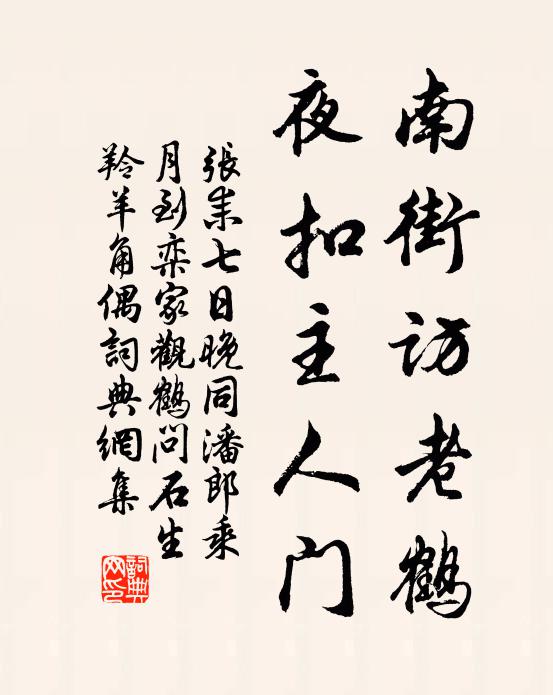 南街訪老鶴
夜扣主人門
張耒七日晚同潘郎乘
月到栾家觀鶴問石生
羚羊角偶詞典網集
詞典
网印